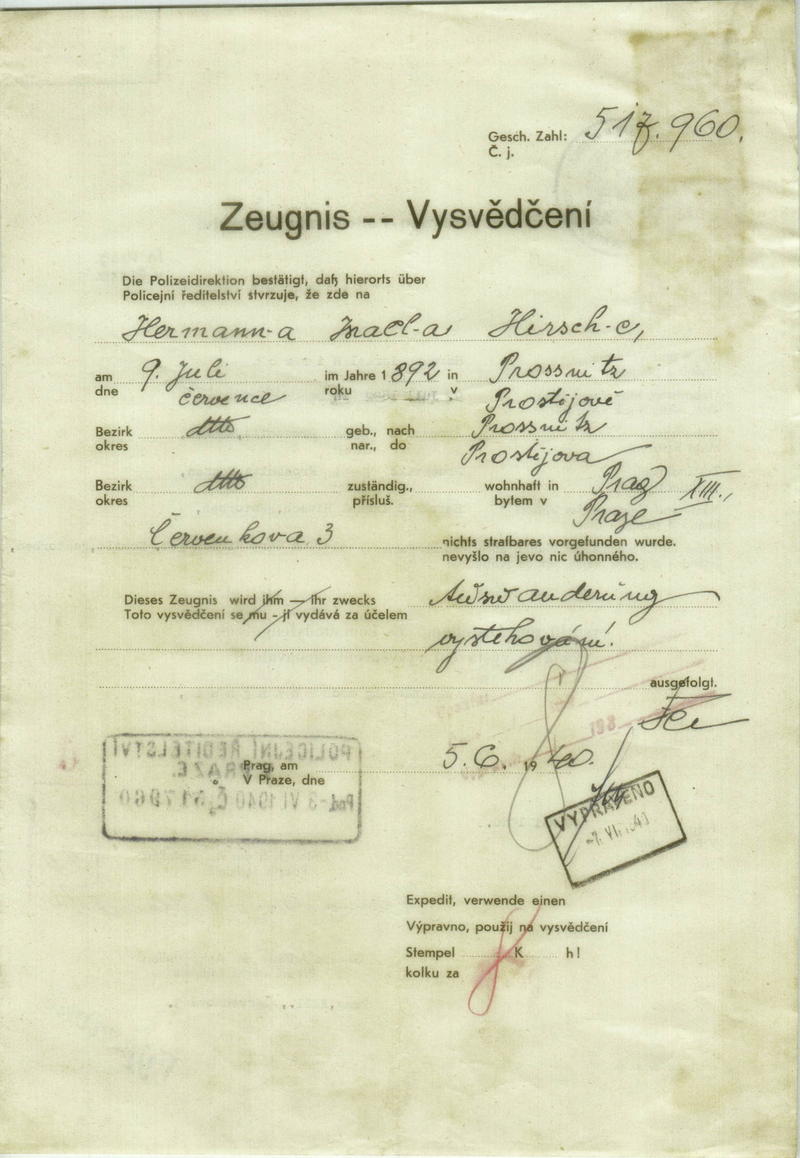 Gesch. Zahl: 517.960.
Č. j.
Zeugnis -- Vysvědčení
Die Polizeidirektion bestätigt, daß hierorts über
Policejní ředitelství stvrzuje, že zde na
Hermann-a Israel-a Hirsch-e,
am 9. Juli im Jahre 1892 in Prossnitz
dne července roku v Prostějově
Bezirk dtto geb., nach Prossnitz
okres nar., do Prostějova
Bezirk dtto zuständig., wohnhaft in Prag XIII.,
okres přísluš. bytem v Praze
Červenkova 3 nichts strafbares vorgefunden wurde.
nevyšlo na jevo nic úhonného.
Dieses Zeugnis wird ihm — ihr zwecks Auswanderung
Toto vysvědčení se mu - jí vydává za účelem
vystěhování.
ausgefolgt.
POLICEJNÍ ŘEDITELSTVÍ
Prag, am 5.6. 1940.
V Praze, dne
V PRAZE
Pod. -3 VI 1940 Č. 517960
VYPRAVENO
-7. VI. 1940
Expedit, verwende einen
Výpravno, použij na vysvědčení
Stempel K h!
kolku za